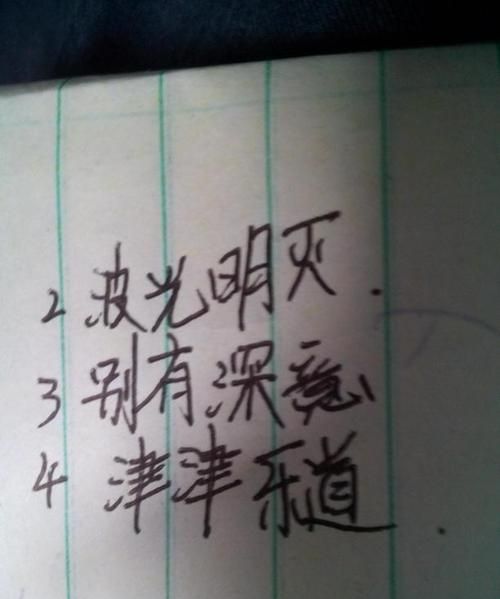 2 波光明灭.
3 别有深意
4 津津乐道.